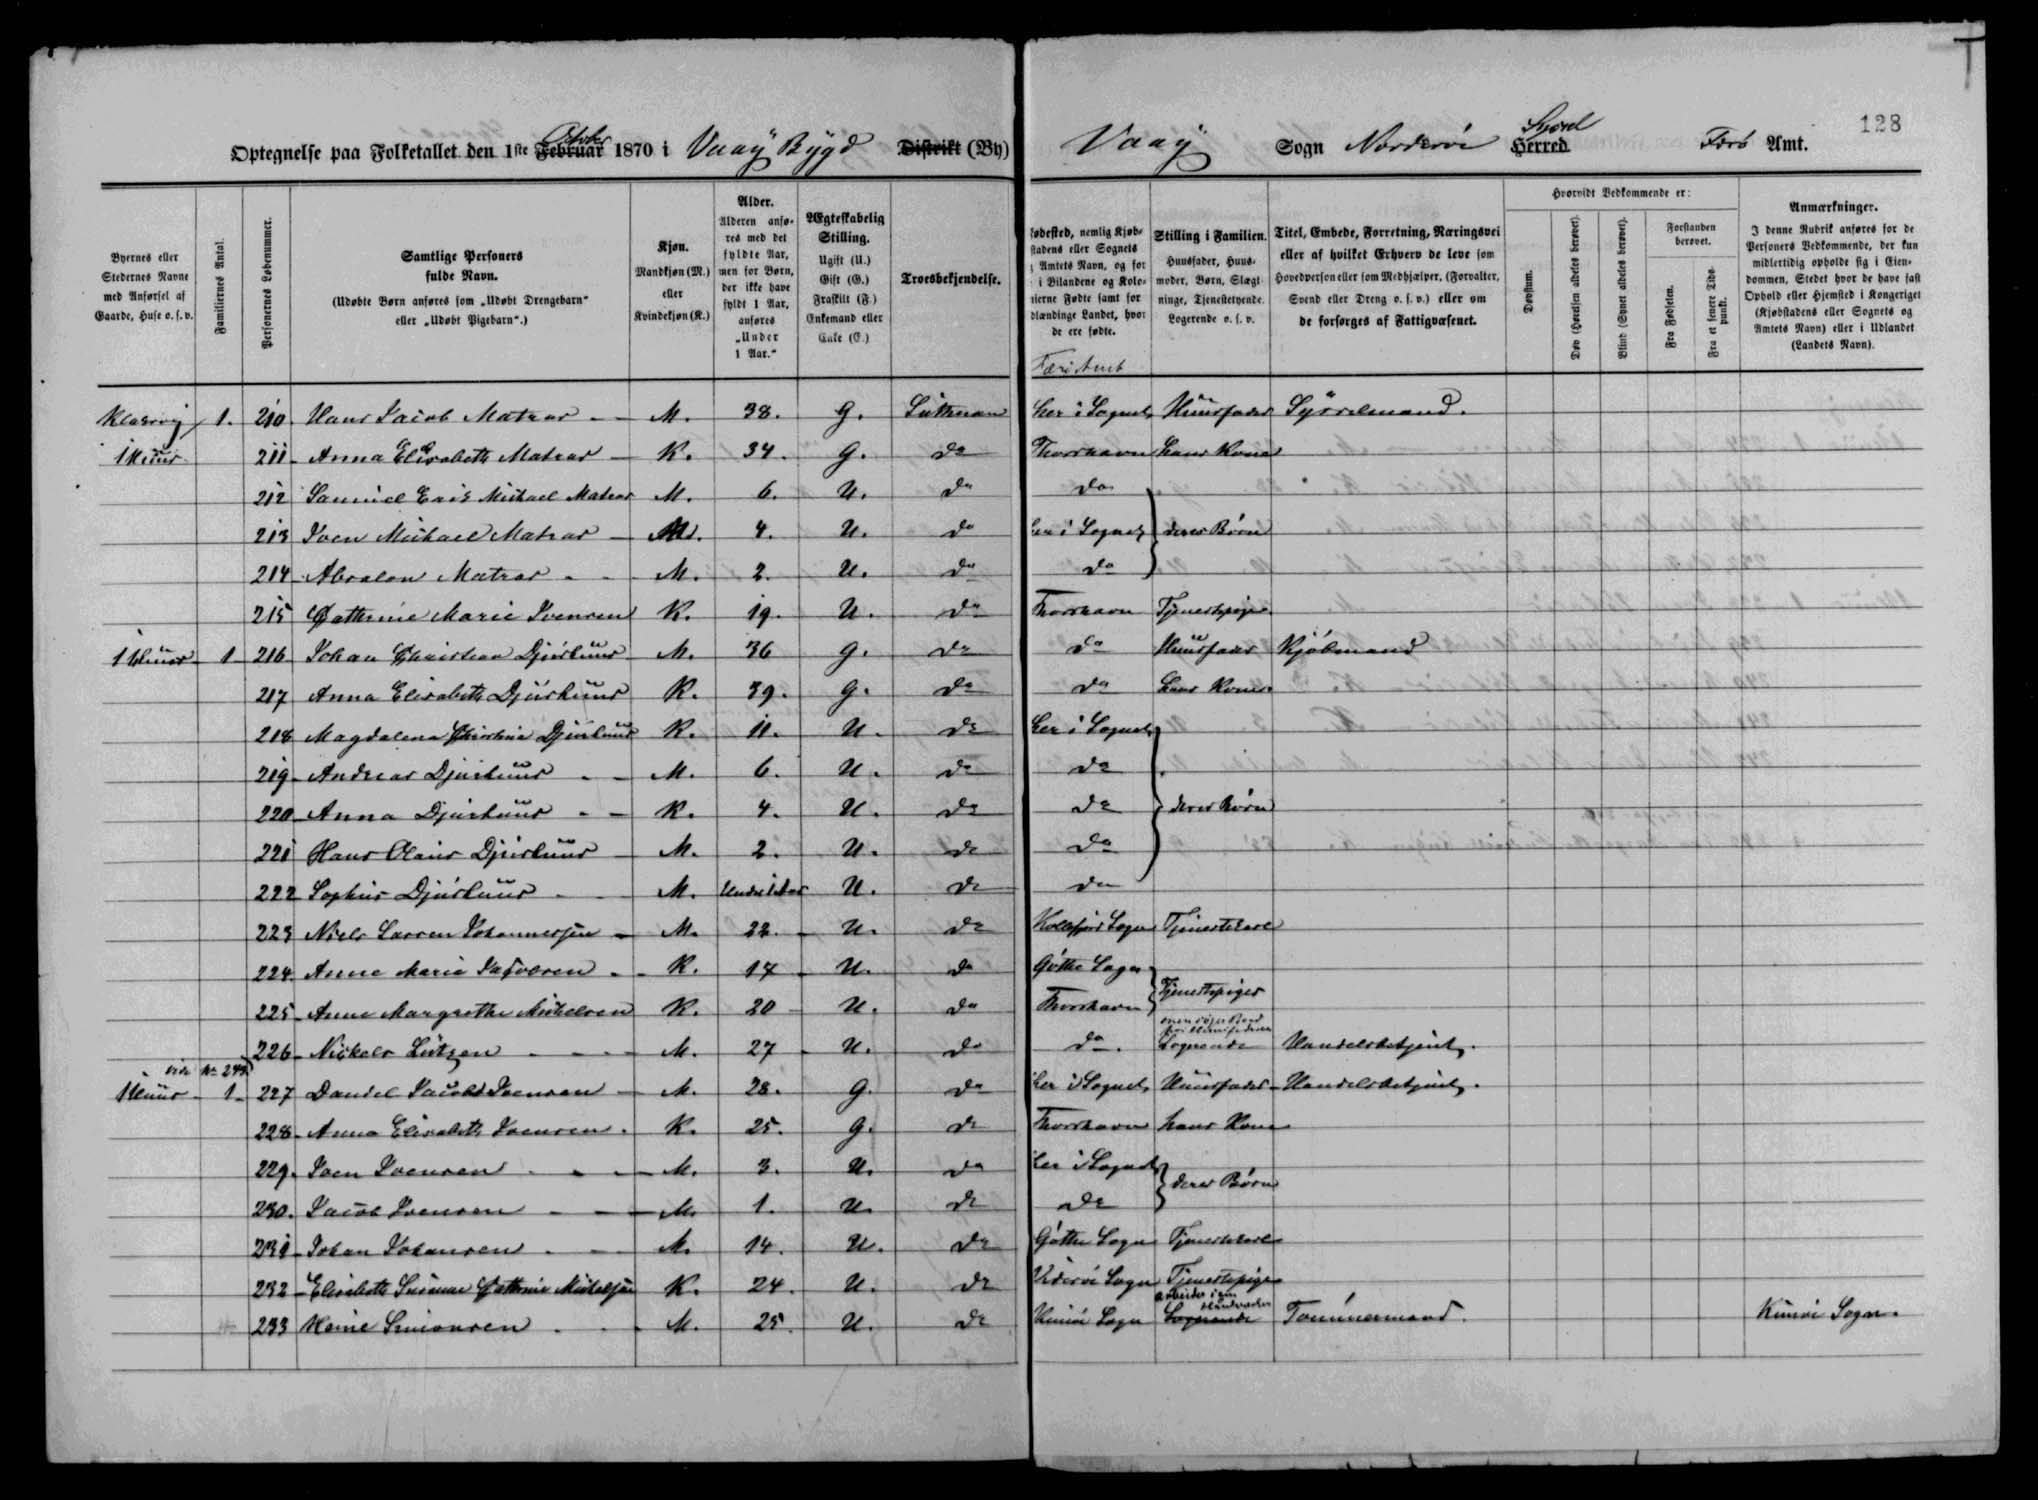 128
Optegnelse paa Folketallet den 1ste Februar October 1870 i Vaaÿ Bÿgd Distrikt (By) Vaaÿ Sogn Norderöe Herred Syssel Færö Amt.
Byernes eller Stedernes Navne med Anførsel af Gaarde, Huse o. s. v.
Familiernes Antal.
Personernes Løbenummer.
Samtlige Personers fulde Navn.
(Udøbte Børn anføres som „Udøbt Drengebarn“ eller „Udøbt Pigebarn“.)
Kjøn.
Mandkjøn (M.) eller Kvindekjøn (K.)
Alder.
Alderen anføres med det fyldte Aar, men for Børn, der ikke have fyldt 1 Aar, anføres „Under 1 Aar.“
Ægteskabelig Stilling.
Ugift (U.)
Gift (G.)
Fraskilt (F.)
Enkemand eller Enke (E.)
Troesbekjendelse.
Fødested, nemlig Kjøbstadens eller Sognets og Amtets Navn, og for i Bilandene og Kolonierne Fødte samt for Udlændinge Landet, hvor de ere fødte.
Stilling i Familien.
Huusfader, Huusmoder, Børn, Slægtninge, Tjenestetyende, Logerende o. s. v.
Titel, Embede, Forretning, Næringsvei eller af hvilket Erhverv de leve som Hovedperson eller som Medhjælper, (Forvalter, Svend eller Dreng o. s. v.) eller om de forsørges af Fattigvæsenet.
Hvorvidt Vedkommende er:
Døvstum.
Døv (Hørelsen aldeles berøvet).
Blind (Synet aldeles berøvet).
Forstanden berøvet.
Fra Fødselen.
Fra et senere Tidspunkt.
Anmærkninger.
I denne Rubrik anføres for de Personers Vedkommende, der kun midlertidig opholde sig i Eiendommen, Stedet hvor de have fast Ophold eller Hjemsted i Kongeriget (Kjøbstadens eller Sognets og Amtets Navn) eller i Udlandet (Landets Navn).
Færö Amt
Klaksvig 1. 210. Hans Jacob Matras M. 38. G. Luthersan her i Sognet Huusfader Sysselmand.
1 Huus 211 Anna Elisabeth Matras K. 34. G. do Thorshavn hans Kone
212 Samuel Michael Matras M. 6. U. do do
213 Joen Michael Matras M. 4. U. do her i Sognet deres Börn
214 Absalon Matras M. 2. U. do do
215 Cathrine Marie Joensen K. 19. U. do Thorshavn Tjenestepige
1 Huus 1 216 Johan Christian Djurhuus M. 36 G. do do Huusfader Kjöbmand
217 Anna Elisabeth Djurhuus K. 39. G. do do hans Kone
218 Magdalena Christine Djurhuus K. 11. U. do her i Sognet
219 Andreas Djurhuus M. 6. U. do do
220 Anna Djurhuus K. 4. U. do do deres Börn
221 Hans Olaus Djurhuus M. 2. U. do do
222 Sophus Djurhuus M. Under 1 Aar U. do do
223 Niels Larsen Johannesen M. 22. U. do Kollefjord Sogn Tjenestekarl
224 Anne Marie Jacobsen K. 17 U. do Göthe Sogn
225 Anne Margrethe Mikkelsen K. 20 U. do Thorshavn Tjenestepiger
226 Nickels Lützen M. 27 U. do do. Logerende Handelsbetjent.
vide No 243
1 Huus 1 227 Daniel Jacob Joensen M. 28. G. do her i Sognet Huusfader Handelsbetjent.
228 Anna Elisabeth Joensen K. 25. G. do Thorshavn hans Kone
229. Joen Joensen M. 3. U. do her i Sognet deres Börn
230. Jacob Joensen M. 1. U. do do
231 Johan Johansen M. 14. U. do Göthe Sogn Tjenestekarl
232 Elisabeth Susanne Cathrine Mikkelsen K. 24. U. do Videröe Sogn Tjenestepige
233 Heine Simonsen M. 25. U. do Kunöe Sogn Logerende Tömmermand. Kunöe Sogn.